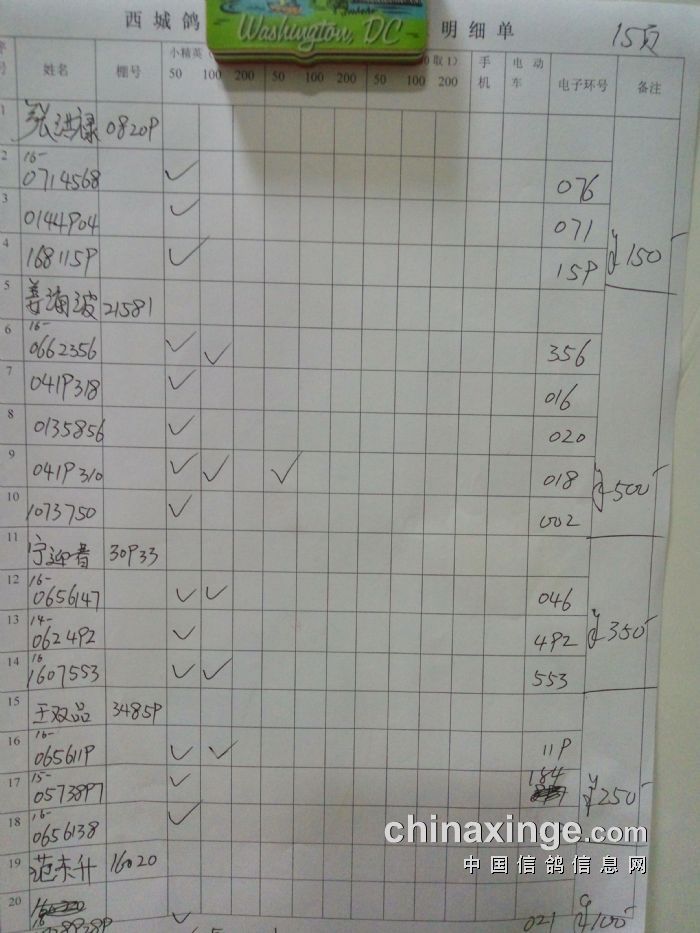 西城鸽 明细单 15页
Washington, DC
号 姓名 棚号 小精英 取1) 手机 电动车 电子环号 备注
50 100 200 50 100 200 50 100 200
1 张洪禄 08209
2 16-0714568 ✓ 076
3 0144904 ✓ 071
4 1681159 ✓ 159 ¥150
5 姜海波 21581
6 16-0662356 ✓ ✓ 356
7 0419318 ✓ 016
8 0135856 ✓ 020
9 0419310 ✓ ✓ ✓ 018 ¥500
10 1073750 ✓ 002
11 宁迎春 30933
12 16-0656147 ✓ ✓ 046
13 14-062492 ✓ 492 ¥350
14 16 1607553 ✓ ✓ 553
15 王双品 34859
16 16-0656119 ✓ ✓ 119
17 15-0573897 ✓ 184 ¥250
18 16-0656138 ✓
19 范东升 16020
20 ✓ 021 ¥100
chinaxinge.com
中国信鸽信息网